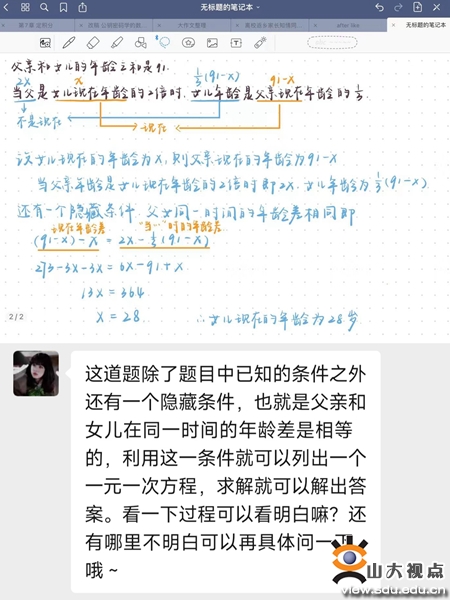 无标题的笔记本
第7章 定积分
大作文整理
after like
无标题的笔记本
父亲和女儿的年龄之和是91.
2x
x
1/3(91-x)
91-x
当父是女儿现在年龄的2倍时,女儿年龄是父亲现在年龄的1/3.
不是现在
现在
设女儿现在的年龄为x,则父亲现在的年龄为91-x
当父亲年龄是女儿现在年龄的2倍时即2x,女儿年龄为1/3(91-x).
还有一个隐藏条件,父女同一时间的年龄差相同即
现在年龄差
"当…"时的年龄差
(91-x)-x = 2x-1/3(91-x)
273-3x-3x = 6x-91+x
13x = 364
x = 28.
∴女儿现在的年龄为28岁
2/2
这道题除了题目中已知的条件之外
还有一个隐藏条件,也就是父亲和
女儿在同一时间的年龄差是相等
的,利用这一条件就可以列出一个
一元一次方程,求解就可以解出答
案。看一下过程可以看明白嘛?还
有哪里不明白可以再具体问一下
哦~
山大视点
view.sdu.edu.cn